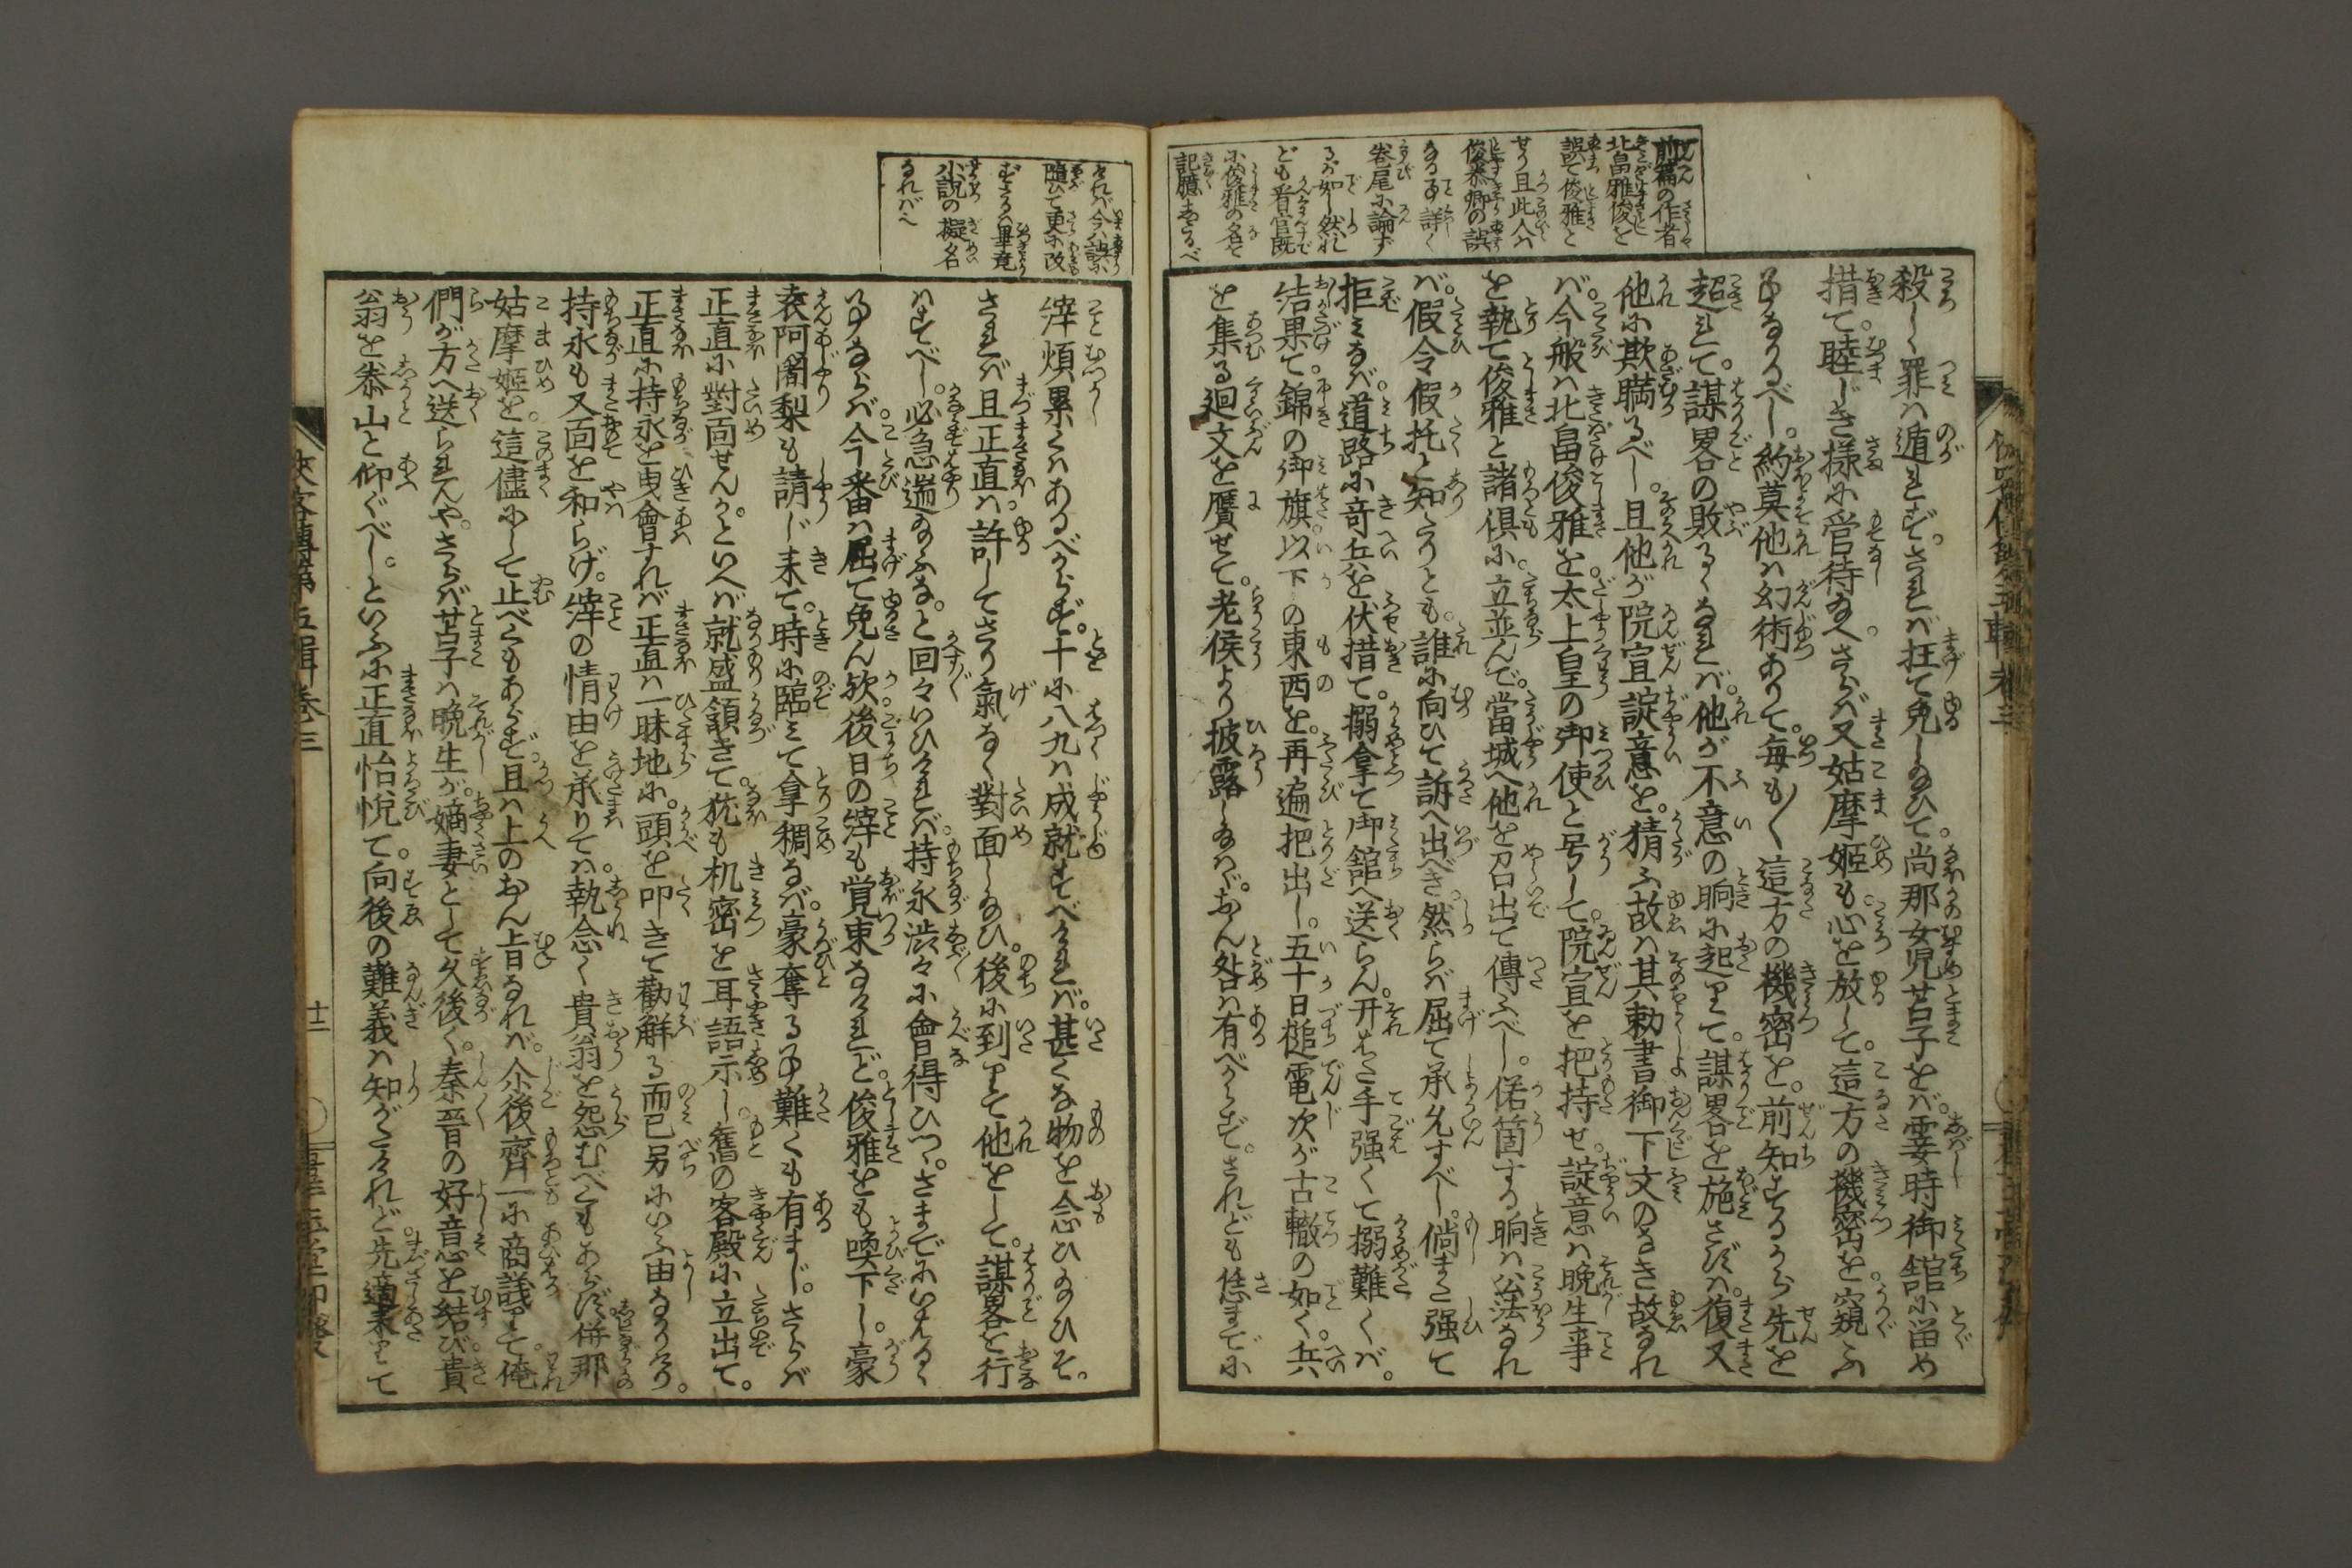 前篇の作者
北畠雅俊を
誤て俊雅と
せり且此人ハ
俊泰卿の誤
なる事詳く
巻尾に論ず
るが如し然れ
ども看官既
に俊雅の名を
記臆したるべ
殺しゝ罪ハ遁れず。されバ枉て免し給ひて。尚那女児苫子をバ。霎時御舘に留め
措て。睦じき様に管待給へ。さらバ又姑摩姫も心を放して。這方の機密を窺ふ
事なかるべし。約莫他ハ幻術ありて。毎も〳〵這方の機密を。前知するから先を
超れて。謀畧の敗るゝなれバ。他が不意の晌に起りて。謀畧を施さずハ。復又
他に欺瞞るべし。且他が院宣諚意を。猜ふ故ハ其勅書御下文のなき故なれ
バ。今般ハ北畠俊雅を。太上皇の御使と号して。院宣を把持せ。諚意ハ晩生事
を執て俊雅と諸倶に。立並んで。當城へ他を召出て傳ふべし。偌箇する晌ハ公法なれ
バ。假令假托と知たりとも。誰に向ひて訴へ出べき。然らバ屈て承允すべし。倘また强て
拒みなバ。道路に竒兵を伏措て。搦拿て御舘へ送らん。开はた手强くて搦難くバ。
結果て。錦の御旗。以下の東西を。再遍把出し。五十日槌電次が古轍の如く。兵
を集る廻文を贋せて。老侯より披露し給ハゞ。おん咎ハ有べからず。されども恁までに
されバ今ハ誤に
隨ひて更に改
ずこハ畢竟
小説の擬名
なれバ也
縡煩累くハあるべからず。十に八九ハ成就すべけれバ。甚くな物を念ひ給ひそ。
されバ且正直ハ。許してさり氣なく對面し給ひ。後に到りて他をして。謀畧を行
ハすべし。必急遑給ふな。と回々いひけれバ。持永渋々に會得ひつ。さまでにいはるゝ
事ならバ。今番ハ屈て免ん欤。後日の縡も覚束なけれど。俊雅をも喚下し。豪
袁阿闍梨も請じ来て。時に臨みて拿稠なバ。豪奪る事難くも有まじ。さらバ
正直に對面せんか。といへバ就盛領きて。犹も机密を耳語示し。舊の客殿に立出て。
正直に持永を曳會すれバ正直ハ一昧地に。頭を叩きて勸解る而已另にいふ由なかりけり。
持永も又面を和らげ。縡の情由を承りてハ。執念く貴翁を怨むべくもあらず。併那
姑摩姫を。這儘にして止べくもあらず。且ハ上のおん旨なれバ。尒後齊一に商議りて。俺
們が方へ送られんや。さらバ苫子ハ晩生が。嫡妻として久後く。秦晋の好意を結び。貴
翁を泰山と仰ぐべし。といふに正直怡悦て。向後の難義ハ知がたけれど。先適来りて